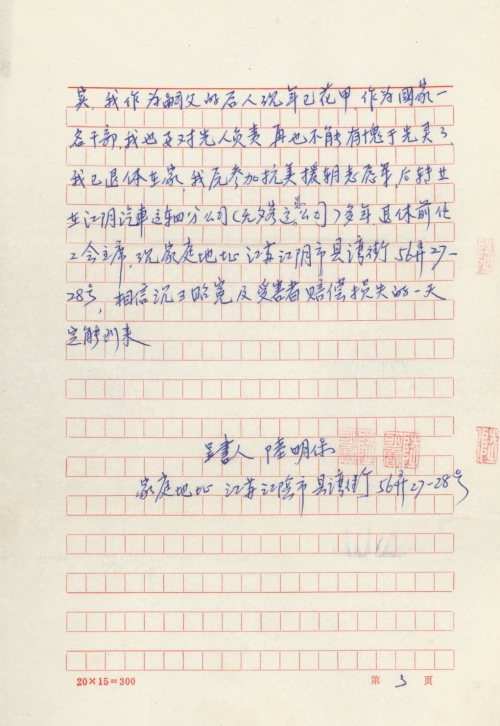 吴，我作为嗣父的后人现年已花甲，作为国家一
名干部，我也要对先人负责再也不能有愧于先灵了
我已退休在家，我历参加抗美援朝志愿军，后转业
在江阴汽車运车四分公司(无夕客运总公司)多年退休前任
工会主席，现家庭地址 江苏江阴市县湾街56弄27-
28号，相信沉 昭寃及受害者赔偿损失的一天
定能到来
呈書人 陸明保
家庭地址 江苏江陰市县湾街56弄27-28号
20×15=300
第 3 页